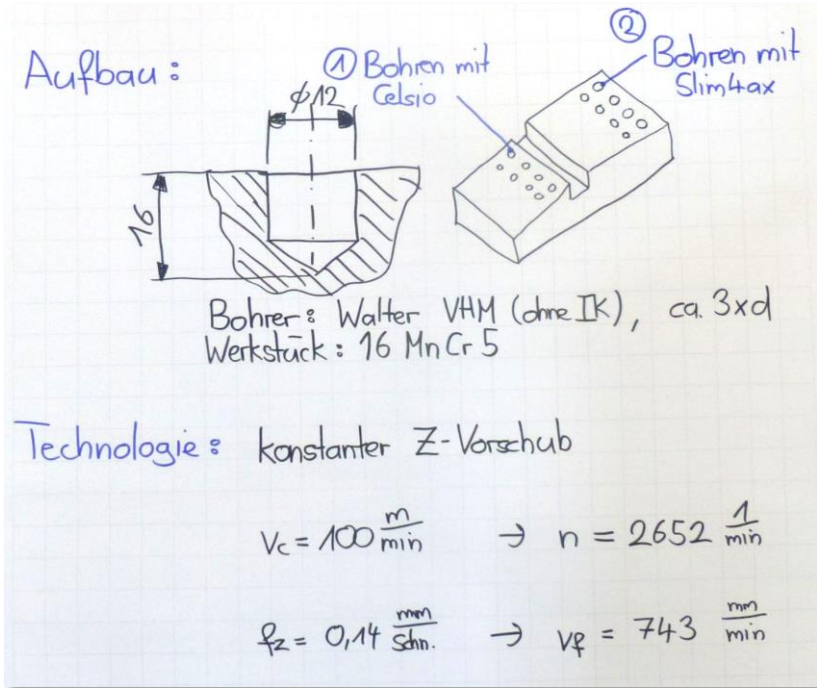 Aufbau:
① Bohren mit
Celsio
② Bohren mit
Slim4ax
ϕ12
16
Bohrer: Walter VHM (ohne IK), ca. 3xd
Werkstück: 16 MnCr5
Technologie: konstanter Z-Vorschub
Vc = 100 m/min → n = 2652 1/min
fz = 0,14 mm/Schn. → vf = 743 mm/min